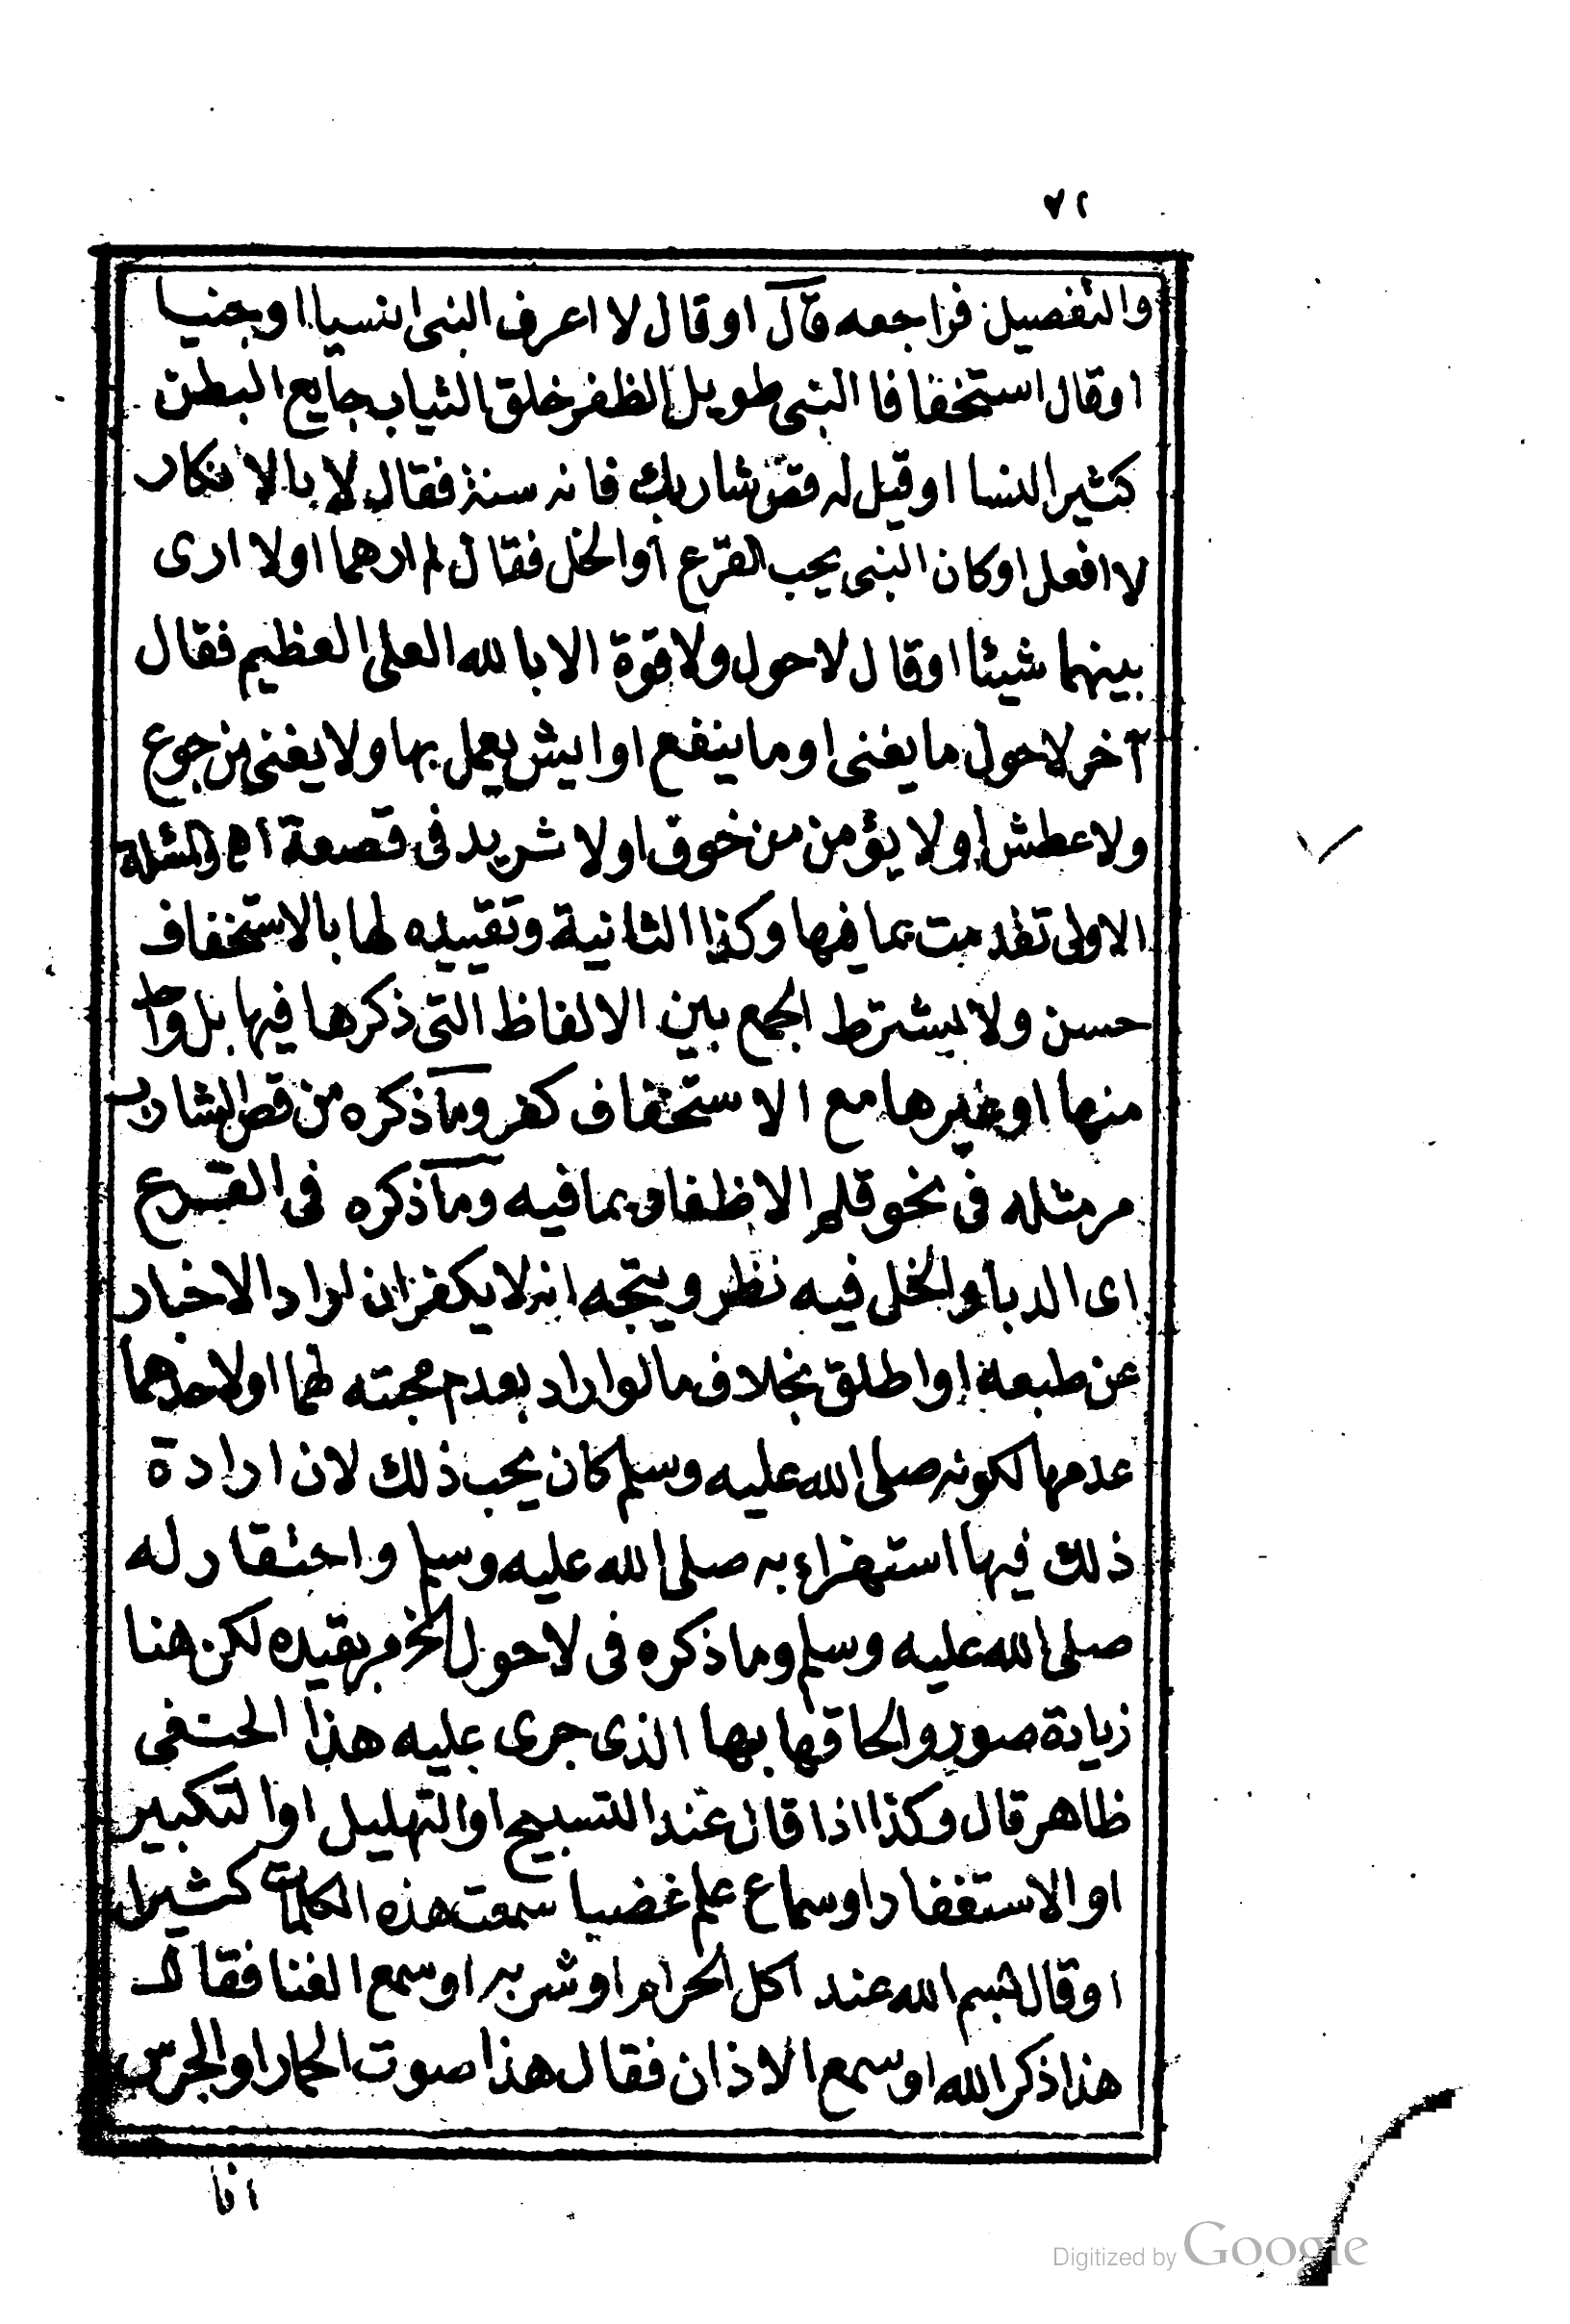 ٧٢
والتفصيل فراجعه قال اوقال لا اعرف النبى انسيا اوجنيا
اوقال استخفافا النبى طويل الظفر خلق الثياب جايع البطن
كثير النسا اوقيل له قص شاربك فانه سنة فقال لا بالانكار
لا افعل اوكان النبى يحب القرع اوالخل فقال لم ارهما اولا ارى
بينهما شيئا اوقال لاحول ولا قوة الا بالله العلى العظيم فقال
آخر لاحول ما يغنى اوما ينفع اوايش يعمل بها ولا يغنى من جوع
ولا عطش اولا يؤمن من خوف اولا ثريد فى قصعة اهـ والمسئلة
الاولى تقدمت بما فيها وكذا الثانية وتقييده لها بالاستخفاف
حسن ولا يشترط الجمع بين الالفاظ التى ذكرها فيها بل واحد
منها اوغيرها مع الاستخفاف كفر وما ذكره من قص الشارب
مر مثله فى نحو قلم الاظفار بما فيه وما ذكره فى القرع
اى الدبا والخل فيه نظر ويتجه انه لا يكفر ان اراد الاخبار
عن طبعه اواطلق بخلاف ما لو اراد بعدم محبته لهما اولاحدهما
عدمها لكونه صلى الله عليه وسلم كان يحب ذلك لان ارادة
ذلك فيها استهزاء به صلى الله عليه وسلم واحتقار له
صلى الله عليه وسلم وما ذكره فى لاحول الخ مر بقيده لكن هنا
زيادة صور والحاقها بها الذى جرى عليه هذا الحنفى
ظاهر قال وكذا اذا قال عند التسبيح اوالتهليل اوالتكبير
اوالاستغفار اوسماع علم غضبا سمعت هذه الكلمات كثيرا
اوقال بسم الله عند اكل الحرام اوشربه اوسمع الغنا فقال
هذا ذكر الله اوسمع الاذان فقال هذا صوت الحمار اوالجرس
انا
Digitized by Google